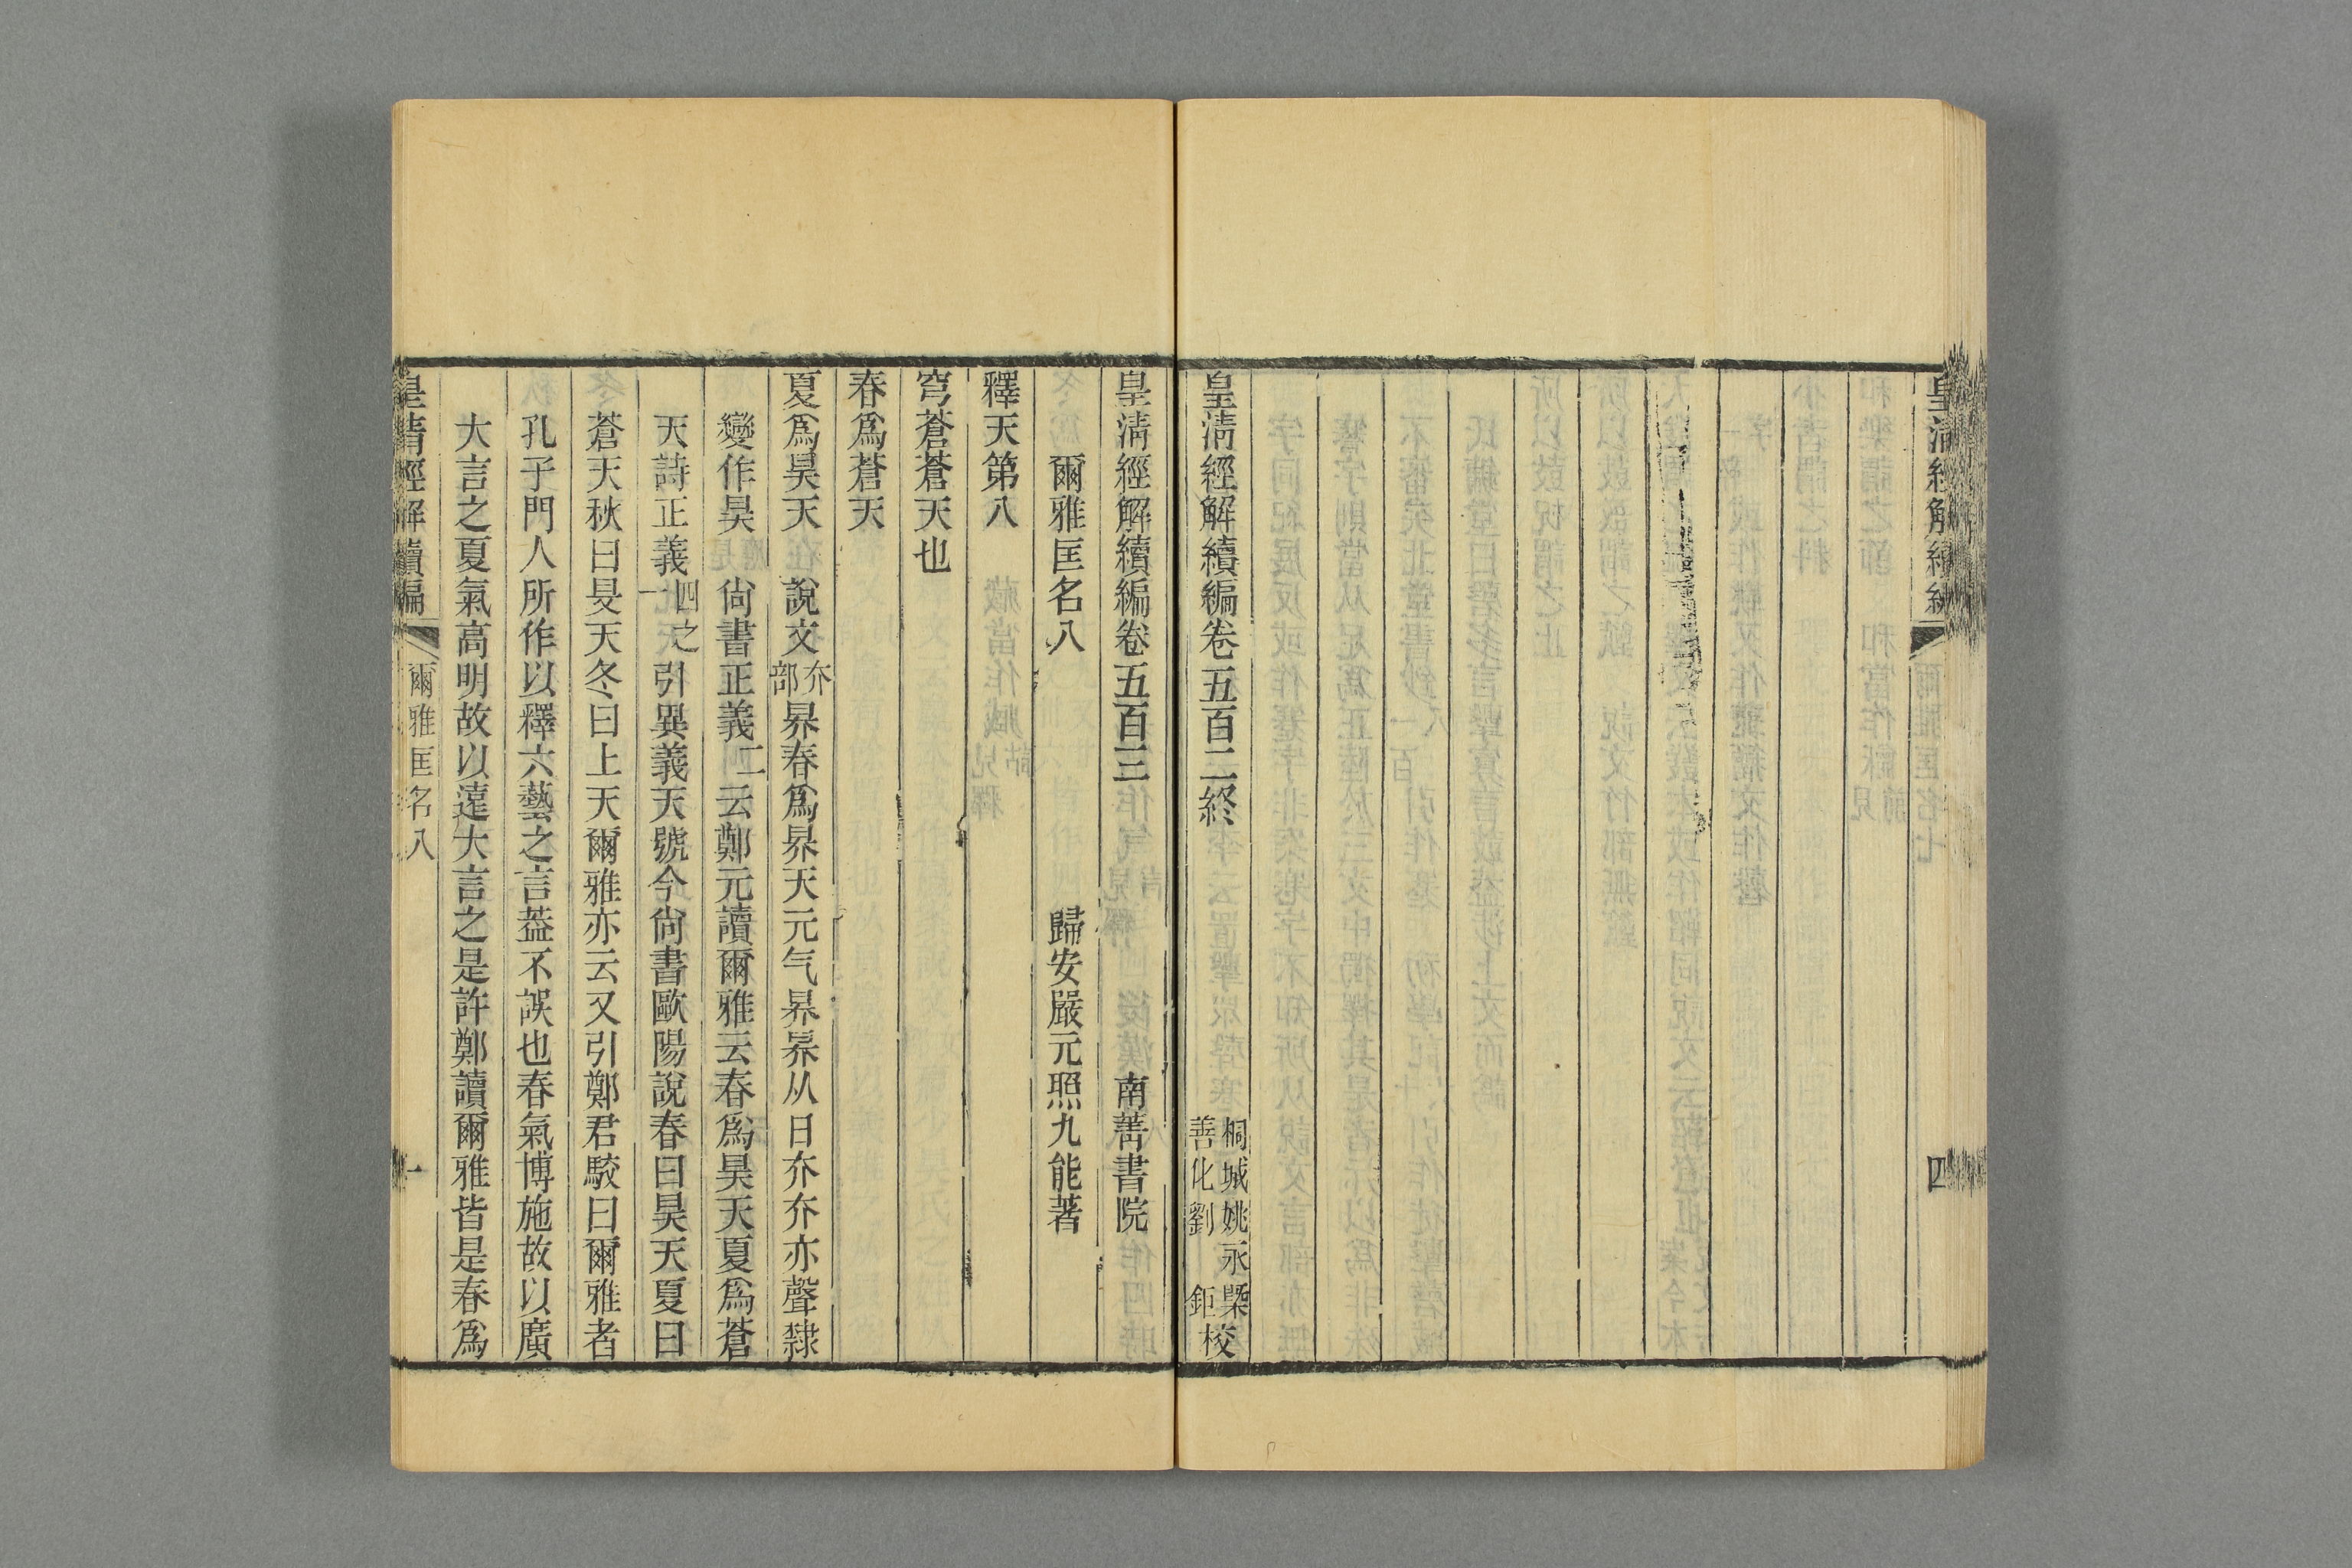 皇清經解續編
四
皇清經解續編卷五百二終
桐城姚永㮣
善化劉鉅
校
皇清經解續編卷五百三
南菁書院
爾雅匡名八
歸安嚴元照九能著
釋天第八
穹蒼蒼天也
春爲蒼天
夏爲昊天 說文夰部昦春爲昦天元气昦昦从日夰夰亦聲隸
變作昊 尙書正義二云鄭元讀爾雅云春爲昊天夏爲蒼
天詩正義四之一引異義天號今尙書歐陽說春曰昊天夏曰
蒼天秋曰旻天冬曰上天爾雅亦云又引鄭君駮曰爾雅者
孔子門人所作以釋六藝之言葢不誤也春氣博施故以廣
大言之夏氣高明故以遠大言之是許鄭讀爾雅皆是春爲
皇清經解續編
爾雅匡名八
一